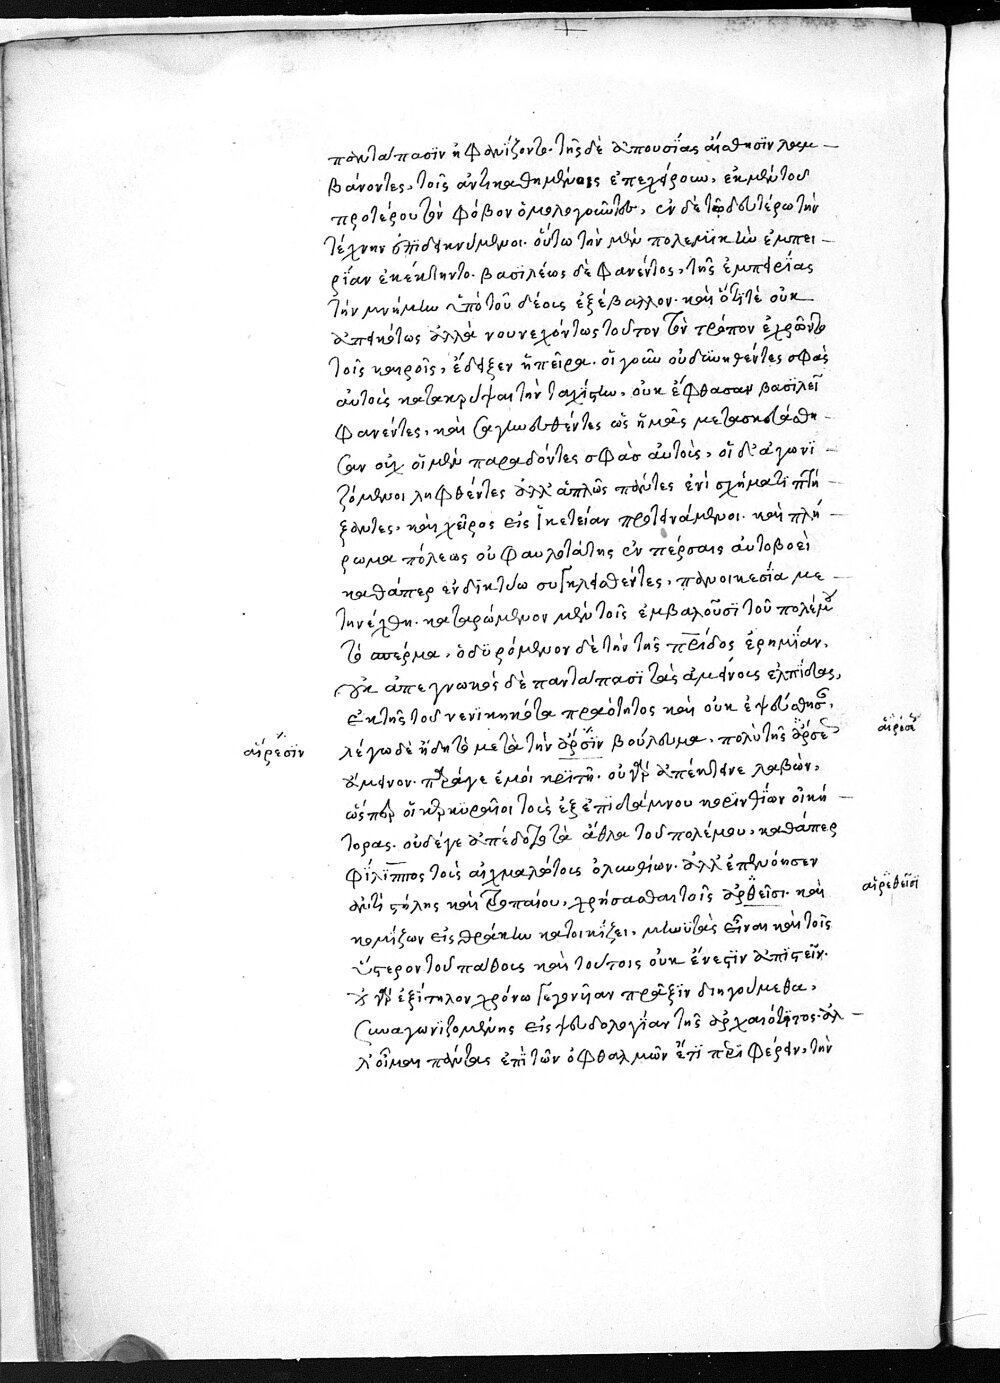 παντάπασϊν ἠφανίζοντο. τῆς δὲ ἀπουσίας αἴσθησϊν λαμ –
βάνοντες, τοῖς ἀντικαθημένοις ἐπεχείρουν, ἐκ μὲν τοῦ
προτέρου τὸν φόβον ὁμολογοῦντες, ἐν δὲ τῷ δευτέρω τὴν
τέχνην ἐπιδεικνύμενοι. οὕτω τὴν μὲν πολεμϊκὴν ἐμπει –
ρΐαν ἐκέκτηντο. βασϊλέως δὲ φανέντος, τῆς ἐμπειρίας
τὴν μνήμην ὑπὸ τοῦ δέους ἐξέβαλλον. καὶ ὅτϊ τὲ οὐκ
ἀπεικότως ἀλλὰ νουνεχόντως τοῦτον τὸν τρόπον ἐχρῶντο
τοῖς καιροῖς, ἔδειξεν ἡ πεῖρα. οἱ γοῦν οὐ δυνηθέντες σφᾶς
αὐτοὺς κατακρύψαι τὴν ταχίστην, οὐκ ἔφθασαν βασϊλεῖ
φανέντες, καὶ σαγηνευθέντες ὡς ἡμᾶς μετεσκευάσθη –
σαν οὐχ οἱ μὲν παραδόντες σφᾶσ αὐτοὺς, οἱ δ' ἀγωνϊ –
ζόμενοι ληφθέντες ἀλλ' ἁπλῶς πάντες ἑνὶ σχήματϊ πτή –
ξαντες, καὶ χεῖρας εἰς ἱκετείαν προτεινάμενοι. καὶ πλή –
ρωμα πόλεως οὐ φαυλοτάτης ἐν πέρσαις αὐτοβοεὶ
καθάπερ ἐν δϊκτύω συγκλεισθέντες, πανοικεσΐα με –
τηνέχθη. καταρώμενον μὲν τοῖς ἐμβαλοῦσϊ τοῦ πολέμου
τὸ σπέρμα, ὀδϋρόμενον δὲ τὴν τῆς πρίδος ἐρημΐαν,
οὐκ ἀπεγνωκὸς δὲ παντάπασϊ τὰς ἀμείνους ἐλπϊδας,
ἐκ τῆς τοῦ νενϊκηκότος πραότητος καὶ οὐκ ἐψεύσθησαν,
λέγω δὲ ἤδη τὸ μετὰ τὴν ἄρσϊν βούλευμα, πολὺ τῆς ἄρσεως
αἵρεσϊν
αἱρέσεως
ἄμεινον. παράγε ἐμοὶ κρϊτῆ. οὐ γὰρ ἀπέκτεινε λαβὼν,
ὥσπερ οἱ κερκϋραῖοι τοὺς ἐξ ἐπϊδάμνου κορϊνθίων οἰκή –
τορας. οὐδέ γε ἀπέδοτο τὰ ἆθλα τοῦ πολέμου, καθάπερ
φΐλϊππος τοὺς αἰχμαλώτους ὀλυνθίων. ἀλλ' ἐπενόησεν
αἱρεθεῖσϊ
ἀντὶ στήλης καὶ τροπαίου, χρήσασθαι τοῖς ἀρθεῖσι. καὶ
κομίζων εἰς θράκην κατοικΐζει, μηνϋτὰς εἶναι καὶ τοῖς
ὕστερον τοῦ πάθους καὶ τούτοις οὐκ ἔνεστϊν ἀπϊστεῖν.
οὐ γὰρ ἐξίτηλον χρόνω γεγονυῖαν πρᾶξϊν διηγούμεθα,
συναγωνϊζομένης εἰς ψευδολογίαν τῆς ἀρχαιότητος. ἀλ –
λ' οἶμαι πάντας ἐπὶ τῶν ὀφθαλμῶν ἔτϊ περϊφέρειν, τὴν